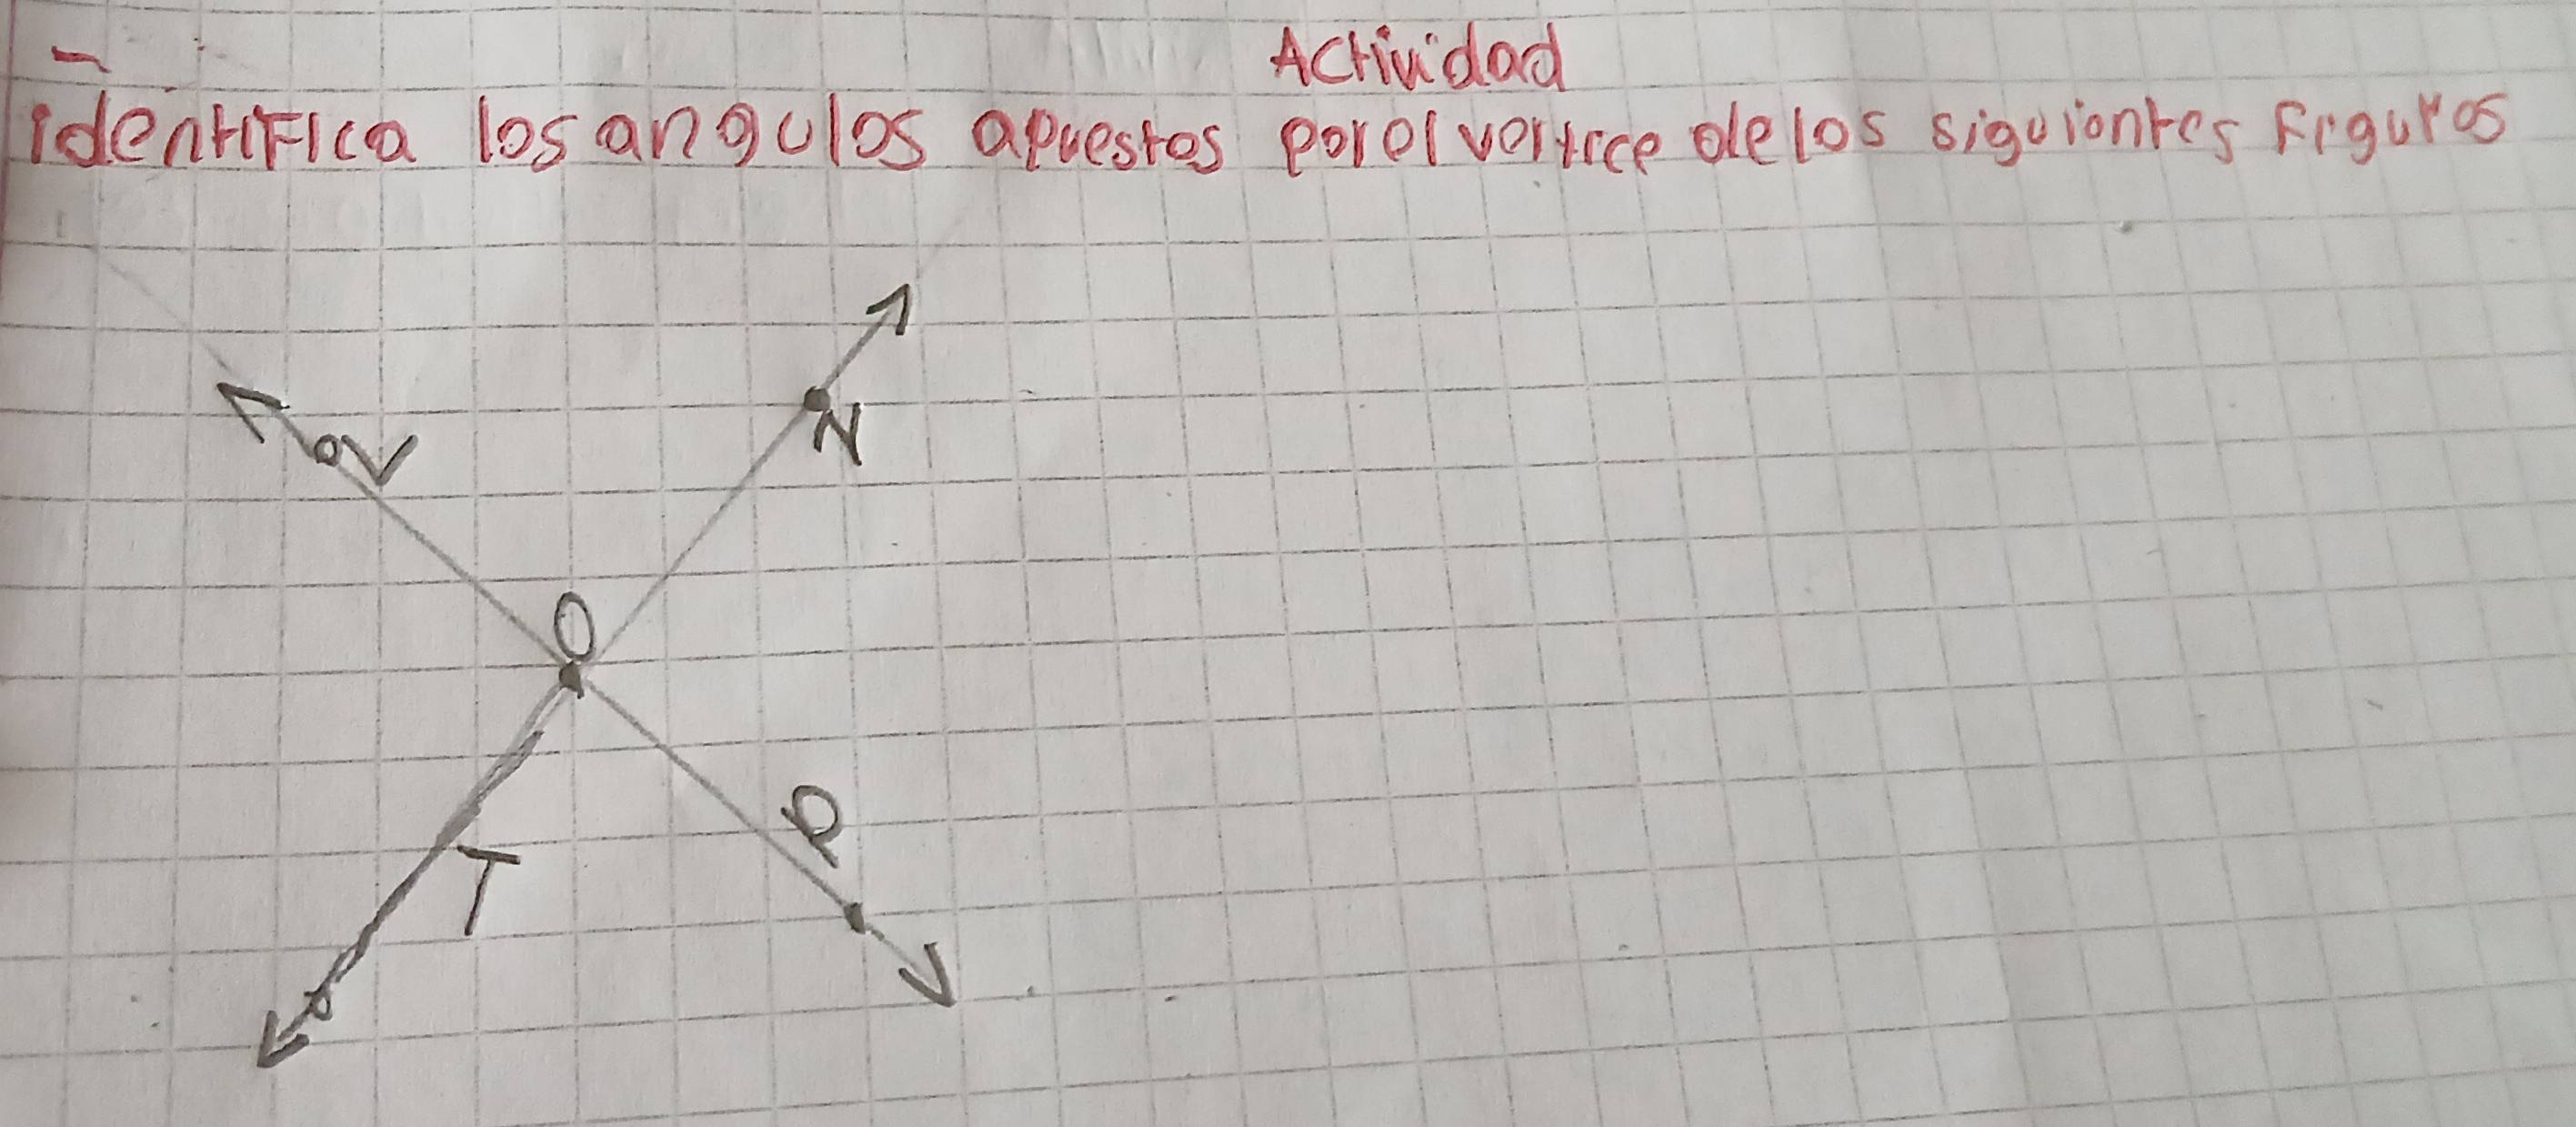 Actividad
identifica los angulos apuestos por el vertice de los siguientes figuras
N
V
O
R
T